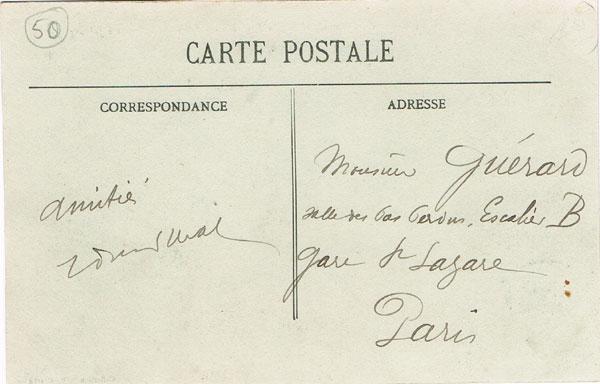 50
CARTE POSTALE
CORRESPONDANCE
ADRESSE
Monsieur Guérard
Salle des Pas Perdus, Escalier B
Gare St Lazare
Paris
Amitiés